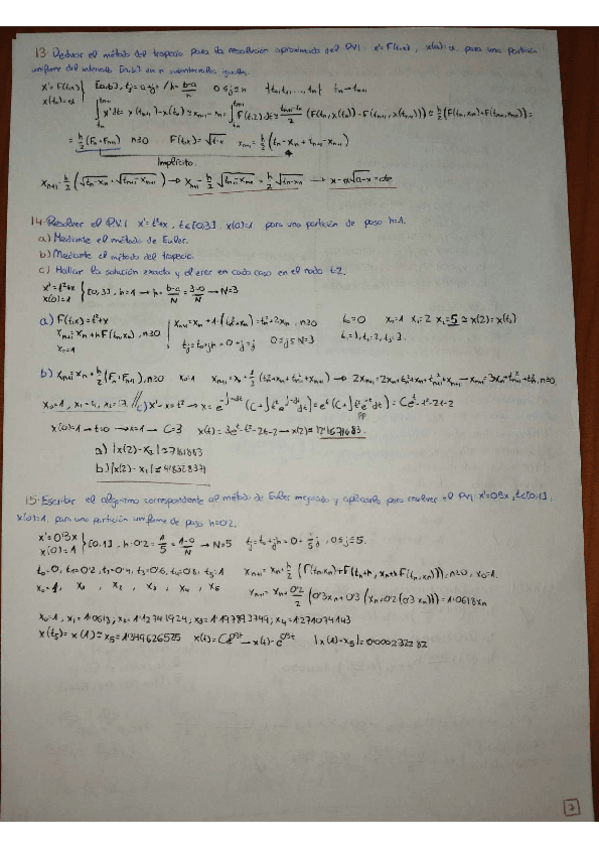 13. Deducir el método del trapecio para la resolución aproximada del P.V.I. x'=F(t,x), x(a)=α para una partición
uniforme del intervalo [a,b] en n subintervalos iguales.
x'=F(t,x) } [a,b], h=(b-a)/n 0≤j≤n {t0,t1,...,tn}
= h/2 (Fn+Fn+1) n≥0 F(t,x)=√(t-x)
Implícito.
14. Resolver el P.V.I. x'=t²+x, t∈[0,3], x(0)=1 para una partición de paso h=1.
a) Mediante el método de Euler.
b) Mediante el método del trapecio.
c) Hallar la solución exacta y el error en cada caso en el nodo t=2.
x'=t²+x
x(0)=1 } [0,3], h=1 → h=(b-a)/N=(3-0)/N → N=3
a) F(t,x)=t²+x
xn+1=xn+hF(tn,xn), n≥0 xn+1=xn+1·(tn²+xn)=tn²+2xn, n≥0 t0=0 x0=1 x1=2 x2=5≈x(2)=x(t2)
x0=1 tj=t0+jh=0+j=j 0≤j≤N=3 t1=1, t2=2, t3=3
b) xn+1=xn+h/2(Fn+Fn+1), n≥0 x0=1 xn+1=xn+1/2(tn²+xn+tn+1²+xn+1) → 2xn+1=2xn+tn²+xn+tn+1²+xn+1 → xn+1=3xn+tn²+tn+1², n≥0
x0=1, x1=4, x2=17 // c) x'-x=t² → x=e^(-∫-dt)(C+∫t²e^(∫-dt)dt)=e^t(C+∫t²e^(-t)dt)=Ce^t-t²-2t-2
x(0)=1 → t=0 → x=1 → C=3 x(t)=3e^t-t²-2t-2 → x(2)=12'1671683
a) |x(2)-x2|=7'161683
b) |x(2)-x2|=4'832831
15. Escribir el algoritmo correspondiente al método de Euler mejorado y aplicarlo para resolver el P.V.I. x'=0'3x, t∈[0,1],
x(0)=1, para una partición uniforme de paso h=0'2.
x'=0'3x
x(0)=1 } [0,1], h=0'2=1/5=(1-0)/N → N=5 tj=t0+jh=0+1/5j, 0≤j≤5.
t0=0, t1=0'2, t2=0'4, t3=0'6, t4=0'8, t5=1 xn+1=xn+h/2(F(tn,xn)+F(tn+h, xn+hF(tn,xn))), n≥0, x0=1.
x0=1, x1, x2, x3, x4, x5 xn+1=xn+0'2/2(0'3xn+0'3(xn+0'2(0'3xn)))=1'0618xn
x0=1, x1=1'0618, x2=1'12741924, x3=1'197093749, x4=1'271074143
x(t5)=x(1)≈x5=1'349626525 x(t)=Ce^0'3t → x(t)=e^0'3t |x(1)-x5|=0'000232282
2